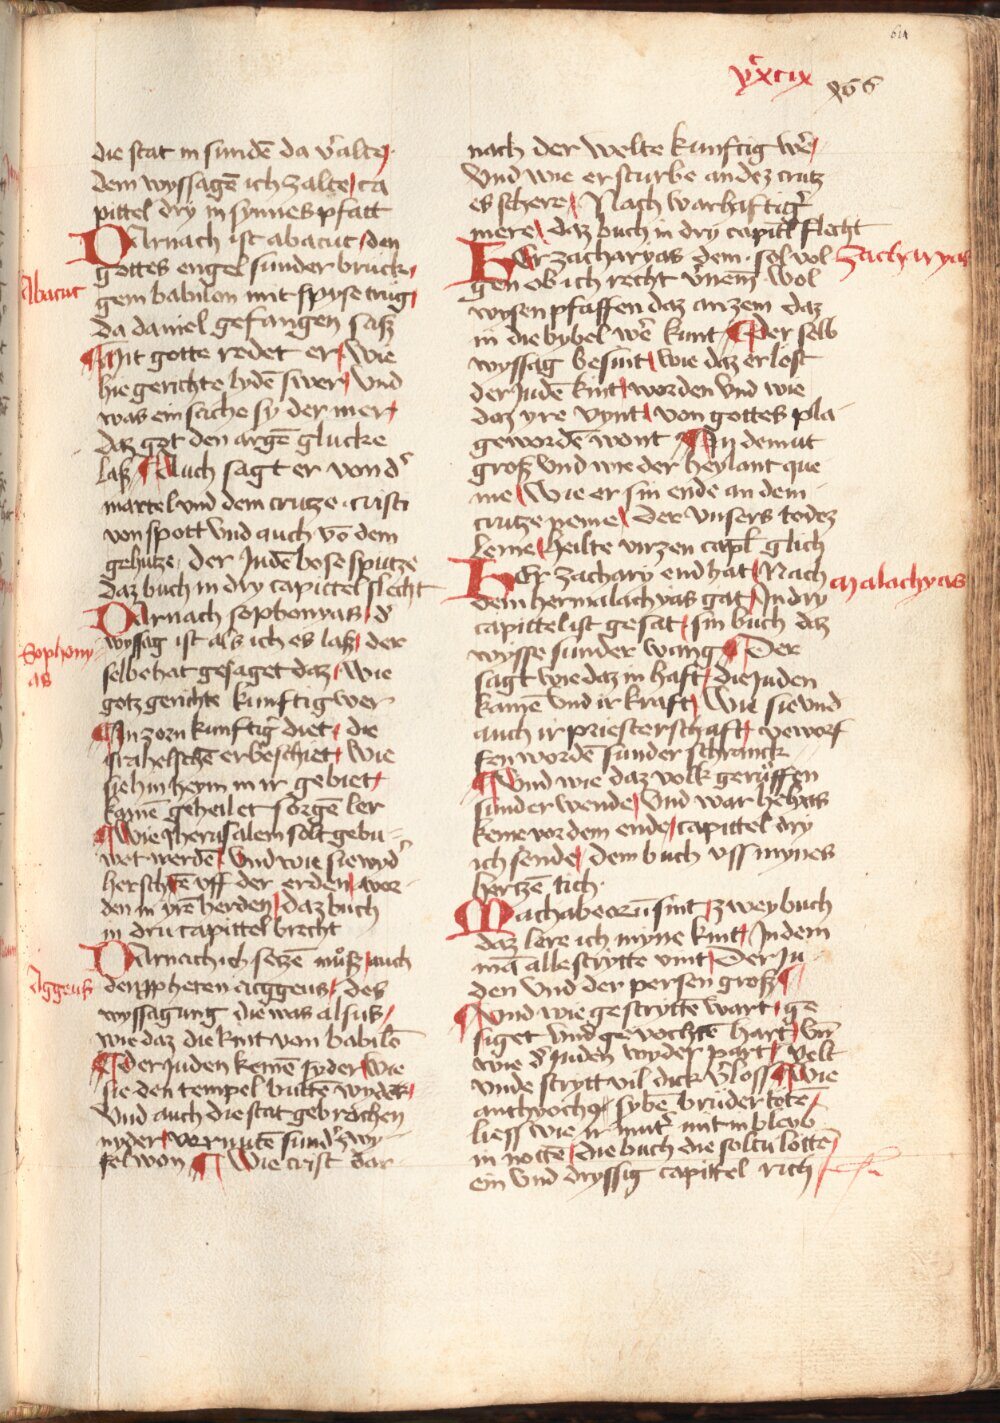 614
vcxcix 466
die stat in sundē da v̓alte
dem wyssagē ich zalte / ca
pittel dry in synnes pfatt
DArnach ist abacuc / den
Abacuc
gottes engel sunder bruck /
gem babilon mit spyse trug /
da daniel gefangen sasz
¶ Mit gotte redet er / wie
hie gerichte lydē swer / vnd
was ein sache sy der mer /
daz got den argē glucke
lasz ¶ Auch sagt er von d̓
martel vnd dem crutze cristi
von spott vnd auch vō dem
gehutze / der Judē bose sputze
daz buch in dry capittel slecht
DArnach sophonyas / d̓
Sophony
as
wyssag ist als ich es lasz / der
selbe hat gesaget daz / wie
gotz gerichte kunftig wer
¶ In zorn kunftig̓ diet / die
srahelschē erbeschiet / wie
sie hin heym in ir gebiet /
kamē geheilet sorge ler
¶ Wie Jherusalem solt gebu
wet werdē / vnd wie sie wyd̓
herschtē vff der erden / wor
den in yrē herden / daz buch
in dru capittel brecht
DArnach ich setzē muͦsz / auch
Aggeus
den ppheten Aggeus / des
wyssagung die was alsus /
wie daz die kint von babilō
¶ der Juden kemē syder / wie
sie den tempel buttē wyder /
vnd auch die stat gebrochen
nyder / vernutē sund̓ zwy
fel won ¶ Wie crist dar
nach der welte kunftig we̓ /
vnd wie er sturbe an dez crutz
es schere / Nach warhaftig̓
mere / daz buch in dry capittl flecht
HEr zacharyas dem sol vol
Zacharyas
gen ob ich recht v̓nem / wol
wysen pfaffen daz an zem daz
in die bybel we̓ kunt ¶ Der selb
wyssag besint / wie daz erlost
der Judē kint / worden vnd wie
daz yre vynt / von gottes pla
gewordē wont ¶ In demut
grosz vnd wie der heylant que
me / Wie er sin ende an dem
crutze neme / der vnsers todez
leme / heilte virzen capl̓ glich
HEr zachary end hat / Nach
Malachyas
dem her malachyas gat / In dry
capittel ist gesat / sin buch daz
wysse sunder wang ¶ Der
sagt wie daz in haft / die Juden
kamē vnd ir kraft / Wie sie vnd
auch ir priesterschaft / veworf
fen wordē sunder schranck
¶ Vnd wie daz volk geruͦffen
sunder wende / vnd war helyas
keme vor dem ende / capittel dry
ich sende / dem buch vss mynes
hertzē tich
MAchabeorū sint / zwey buch
daz lere ich myne kint / In dem
mā alle strytte vint / Der Ju
den vnd der persen grosz ¶
¶ Vnd wie gestryttē wart / ge
siget vnd gevochtē hart / vn̄
wie d̓ Juden wyder part / velt
vnde strytt vil dick v̓loss ¶ Wie
anthyochꝯ sybē brüder totē /
liess wie ir mut̓ mit in bleyb
in notte / die buch die soltu lotte /
ein vnd dryssig capittel rich /